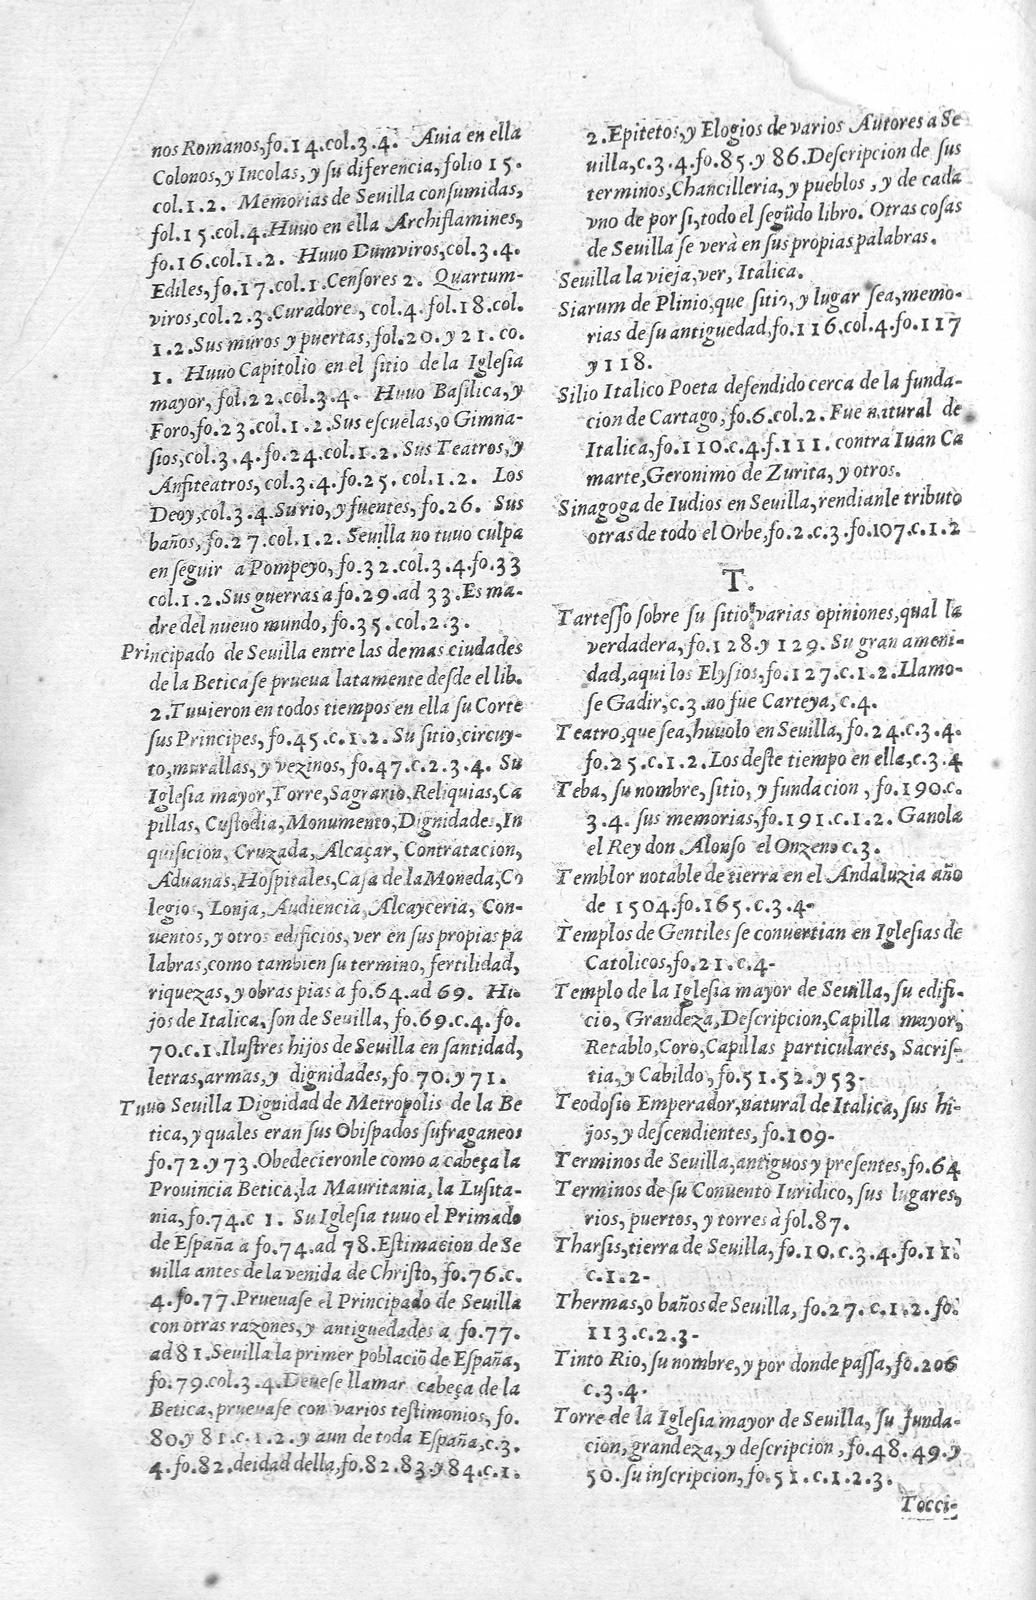 nos Romanos,fo.14.col.3.4. Auia en ella
Colonos,y Incolas,y su diferencia,folio 15.
col.1.2. Memorias de Seuilla consumidas,
fol.15.col.4.Huuo en ella Archiflamines,
fo.16.col.1.2. Huuo Dumviros,col.3.4.
Ediles,fo.17.col.1.Censores 2. Quartum-
viros,col.2.3.Curadores, col.4.fol.18.col.
1.2.Sus muros y puertas,fol.20.y 21.co.
1. Huuo Capitolio en el sitio de la Iglesia
mayor, fol.22.col.3.4. Huuo Basilica,y
Foro,fo.23.col.1.2.Sus escuelas,o Gimna-
sios,col.3.4.fo.24.col.1.2.Sus Teatros,y
Anfiteatros,col.3.4.fo.25.col.1.2. Los
Deoy,col.3.4.Su rio,y fuentes,fo.26. Sus
baños,fo.27.col.1.2.Seuilla no tuuo culpa
en seguir a Pompeyo, fo.32.col.3.4.fo.33
col.1.2.Sus guerras a fo.29.ad 33.Es ma-
dre del nueuo mundo,fo.35.col.2.3.
Principado de Seuilla entre las demas ciudades
de la Betica se prueua latamente desde el lib.
2.Tuuieron en todos tiempos en ella su Corte
sus Principes, fo.45.c.1.2. Su sitio,circuy-
to,murallas,y vezinos,fo.47.c.2.3.4. Su
Iglesia mayor,Torre,Sagrario,Reliquias,Ca
pillas, Custodia,Monumento,Dignidades,In
quisicion, Cruzada, Alcaçar, Contratacion,
Aduanas,Hospitales,Casa de la Moneda,Co
legios, Lonja, Audiencia, Alcayceria, Con-
uentos,y otros edificios, ver en sus propias pa
labras,como tambien su termino, fertilidad,
riquezas, y obras pias a fo.64.ad 69. Hi-
jos de Italica,son de Seuilla, fo.69.c.4.fo.
70.c.1.Ilustres hijos de Seuilla en santidad,
letras,armas,y dignidades, fo 70.y 71.
Tuuo Seuilla Dignidad de Metropolis de la Be
tica, y quales eran sus Obispados sufraganeos
fo.72.y 73.Obedecieronle como a cabeça la
Prouincia Betica,la Mauritania, la Lusita-
nia,fo.74.c 1. Su Iglesia tuuo el Primado
de España a fo.74.ad 78.Estimacion de Se
uilla antes de la venida de Christo, fo.76.c.
4.fo.77.Prueuase el Principado de Seuilla
con otras razones,y antiguedades a fo.77.
ad 81.Seuilla la primer poblaciõ de España,
fo.79.col.3.4.Deuese llamar cabeça de la
Betica,prueuase con varios testimonios, fo.
80.y 81.c.1.2.y aun de toda España,c.3.
4.fo.82.deidad della,fo.82.83.y 84.c.1.
2.Epitetos,y Elogios de varios Autores a Se
uilla,c.3.4.fo.85.y 86.Descripcion de sus
terminos,Chancilleria,y pueblos,y de cada
vno de por si,todo el segũdo libro. Otras cosas
de Seuilla se verà en sus propias palabras.
Seuilla la vieja,ver, Italica.
Siarum de Plinio,que sitio,y lugar sea,memo-
rias de su antiguedad,fo.116.col.4.fo.117
y 118.
Silio Italico Poeta defendido cerca de la funda-
cion de Cartago, fo.6.col.2. Fue natural de
Italica,fo.110.c.4.f.111. contra Iuan Ca
marte,Geronimo de Zurita, y otros.
Sinagoga de Iudios en Seuilla,rendianle tributo
otras de todo el Orbe,fo.2.c.3.fo.107.c.1.2
T.
Tartesso sobre su sitio varias opiniones,qual la
verdadera,fo.128.y 129. Su gran ameni-
dad,aqui los Elysios,fo.127.c.1.2.Llamo-
se Gadir,c.3.no fue Carteya,c.4.
Teatro,que sea,huuolo en Seuilla, fo.24.c.3.4.
fo.25.c.1.2.Los deste tiempo en ella,c.3.4
Teba, su nombre, sitio, y fundacion, fo.190.c.
3.4. sus memorias,fo.191.c.1.2. Ganola
el Rey don Alonso el Onzeno c.3.
Temblor notable de tierra en el Andaluzia año
de 1504.fo.165.c.3.4-
Templos de Gentiles se conuertian en Iglesias de
Catolicos,fo.21.c.4-
Templo de la Iglesia mayor de Seuilla, su edifi-
cio, Grandeza,Descripcion,Capilla mayor,
Retablo,Coro,Capillas particulares, Sacris-
tia,y Cabildo, fo.51.52.y 53-
Teodosio Emperador,natural de Italica, sus hi-
jos,y descendientes, fo.109-
Terminos de Seuilla,antiguos y presentes,fo.64
Terminos de su Conuento Iuridico, sus lugares,
rios, puertos, y torres à fol.87.
Tharsis,tierra de Seuilla,fo.10.c.3.4.fo.11.
c.1.2-
Thermas,o baños de Seuilla, fo.27.c.1.2.fo.
113.c.2.3-
Tinto Rio, su nombre,y por donde passa,fo.206
c.3.4.
Torre de la Iglesia mayor de Seuilla, su funda-
cion,grandeza,y descripcion,fo.48.49.y
50.su inscripcion,fo.51.c.1.2.3.
Tocci-